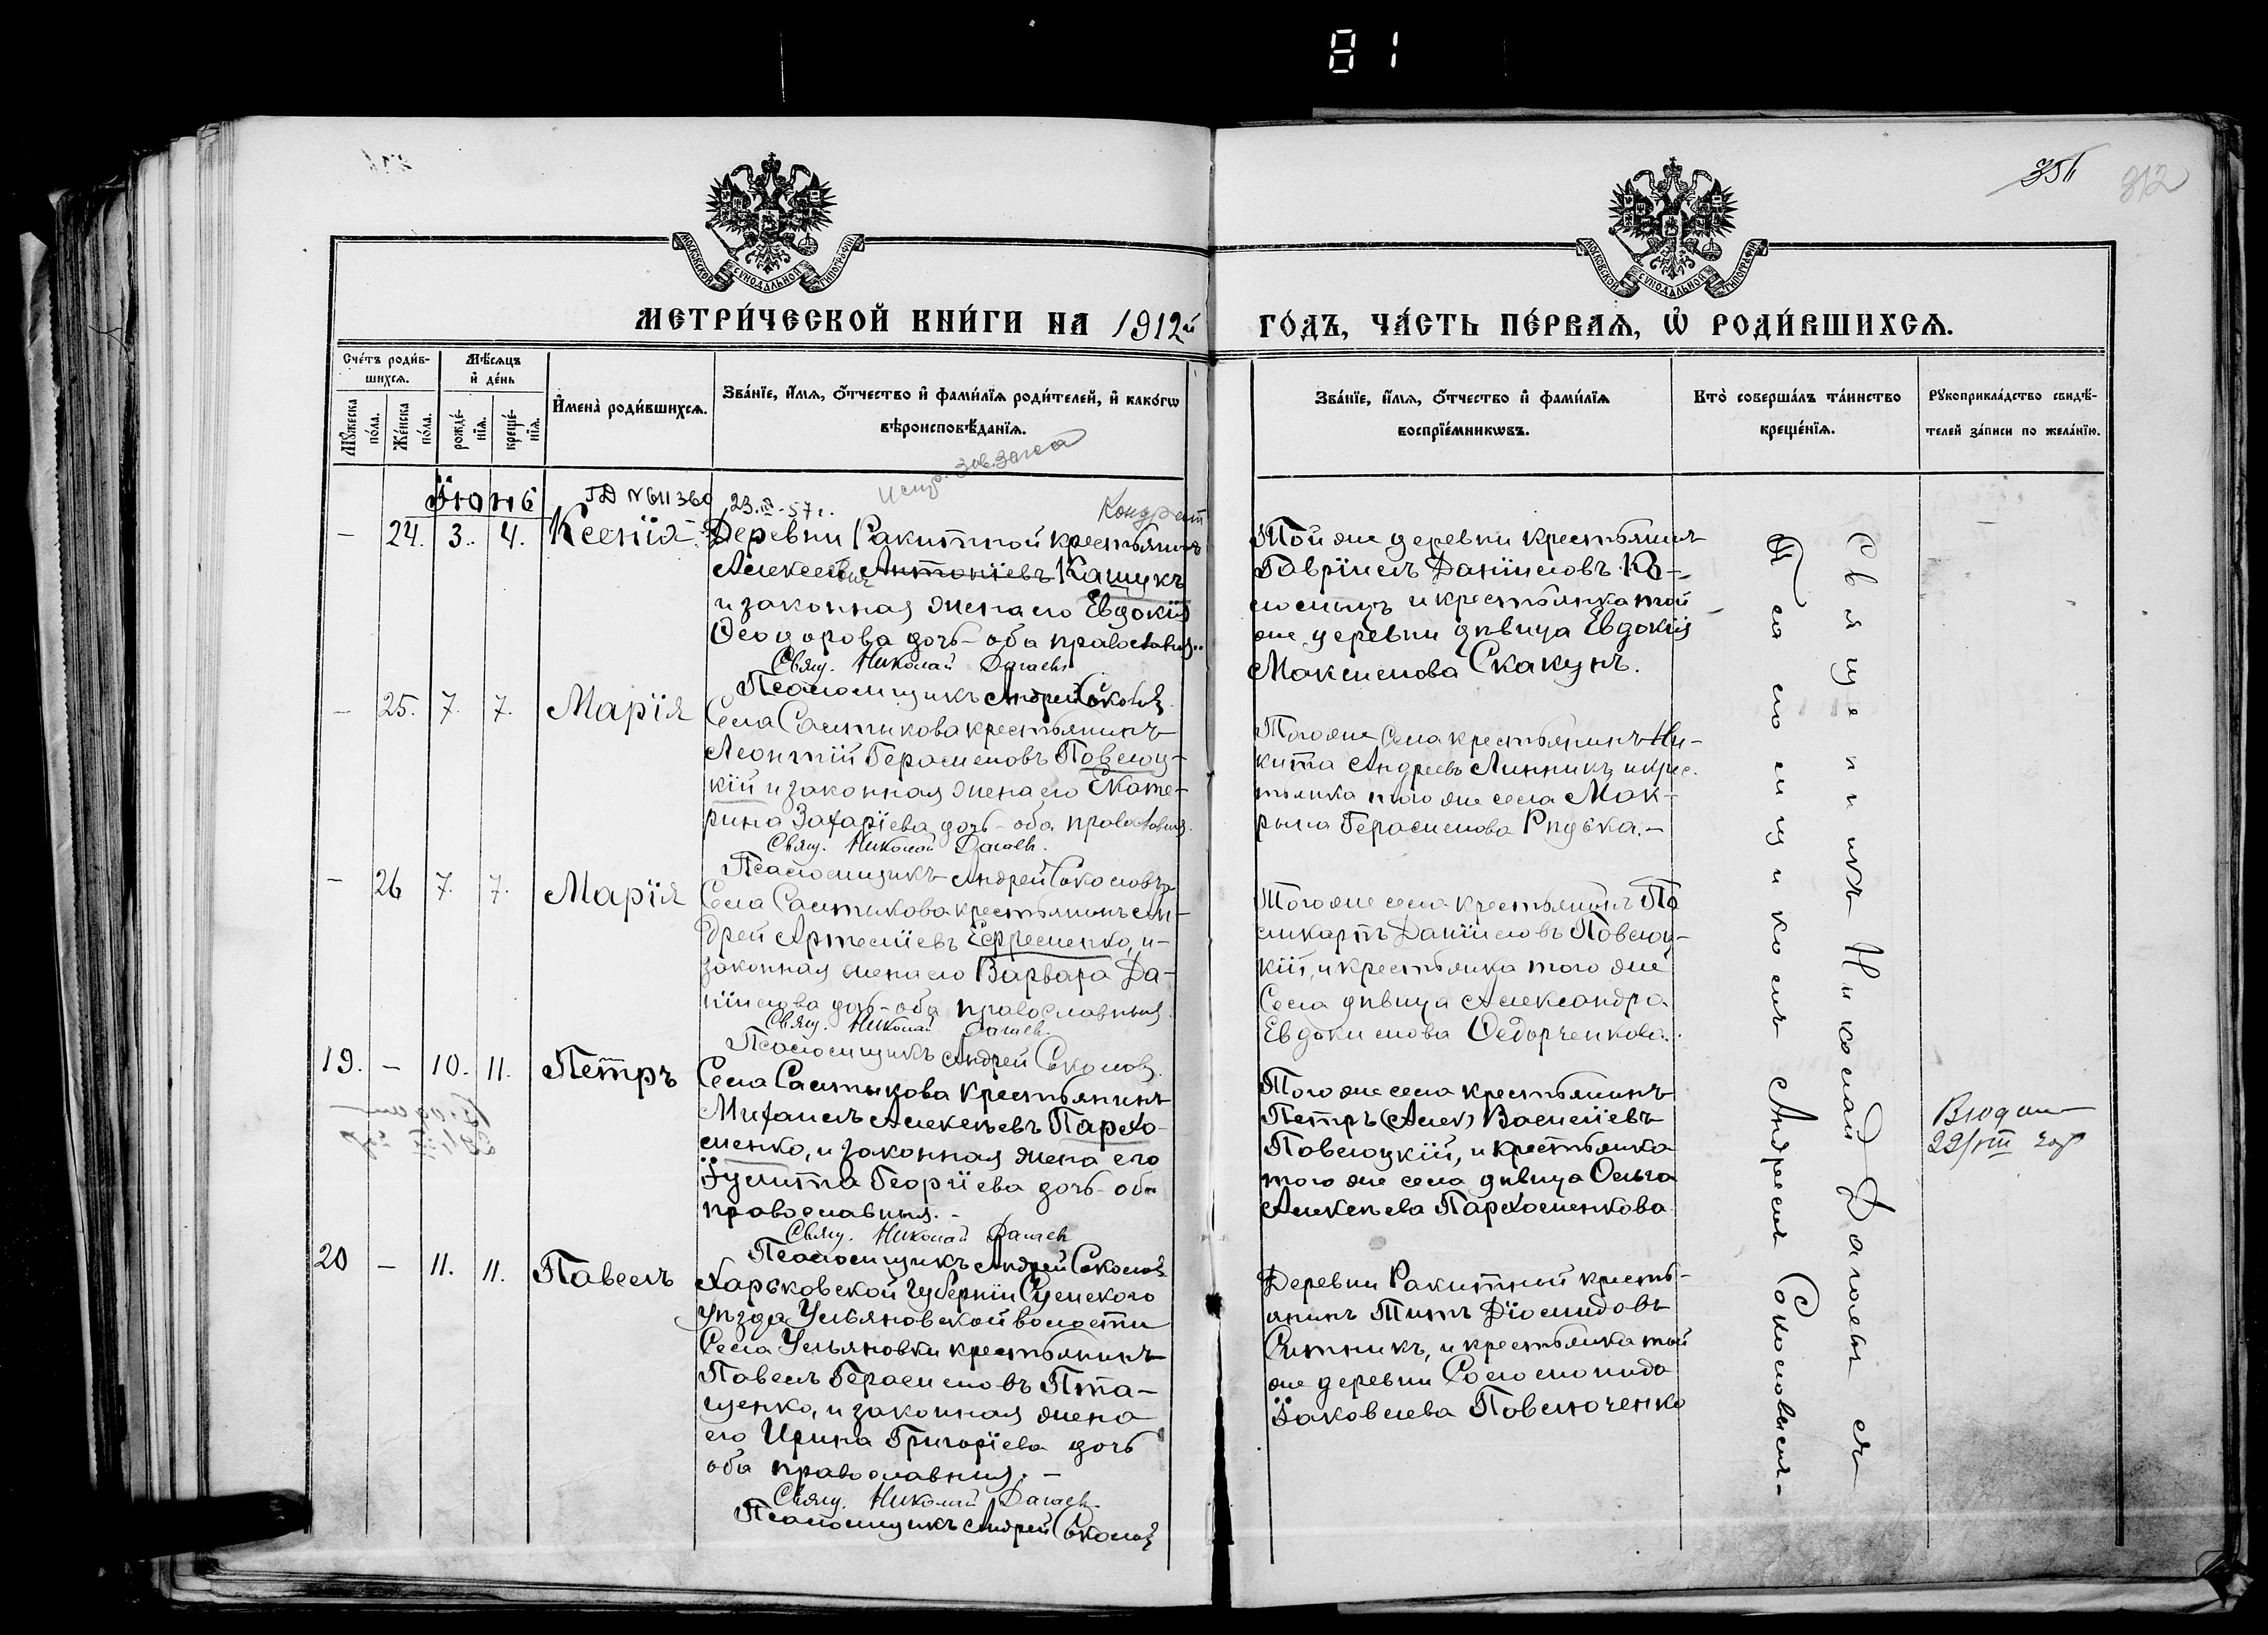 81
351
312
МОСКОВСКОЙ СѴНОДАЛЬНОЙ ТИПОГРАФІИ
МОСКОВСКОЙ СѴНОДАЛЬНОЙ ТИПОГРАФІИ
МЕТРИ́ЧЕСКОЙ КНИ́ГИ НА 1912й ГО́ДЪ, ЧА́СТЬ ПЕ́РВАЯ, Ѡ҆ РОДИ́ВШИХСЯ.
Сче́тъ роди́в-
шихся.
Мꙋ́жеска
по́ла.
Же́нска
по́ла.
Мѣ́сяцъ
и҆ де́нь
рожде́-
нїя.
креще́-
нїя.
И҆мена̀ роди́вшихся.
Зва́нїе, и҆́мя, о҆́тчество и҆ фами́лїя роди́телей, и҆ како́гѡ
вѣроисповѣ́данїя.
Зва́нїе, и҆́мя, о҆́тчество и҆ фами́лїя
воспрїе́мникѡвъ.
Кто̀ соверша́лъ та́инство
креще́нїя.
Рꙋкоприкла́дство свидѣ́-
телей за́писи по жела́нїю.
Їюнь
ГД № 611360 23.III-57г.
испр. зав. загса
Кондрат
— 24. 3. 4. Ксенїа
Деревни Ракитной крестьянинъ
Алексей Антонїевъ Кащукъ
и законная жена его Евдокія
Ѳеодорова дочь - оба православныя.
Свящ. Николай Дагаевъ
Псаломщикъ Андрей Соколовъ
Той же деревни крестьянинъ
Гаврїилъ Данїиловъ Ко-
и крестьянка той
же деревни дѣвица Евдокія
Максимова Скакунъ.
— 25. 7. 7. Марїя
Села Салтыкова крестьянинъ
Леонтїй Герасимовъ Павлюц-
кїй и законная жена его Екате-
рина Захарїева дочь - оба православныя.
Свящ. Николай Дагаевъ.
Псаломщикъ Андрей Соколовъ
Того же села крестьянинъ Ни-
кита Андреевъ Линникъ и крес-
тьянка того же села Мак-
рина Герасимова Рядска.—
— 26 7. 7. Марїя
Села Салтыкова крестьянинъ Ан-
дрей Артемїевъ Ефременко, и
законная жена его Варвара Да-
нїилова дочь - оба православныя
Свящ. Николай Дагаевъ.
Псаломщикъ Андрей Соколовъ.
Того же села крестьянинъ По
ликарпъ Данїиловъ Павлюц-
кїй, и крестьянка того же
села дѣвица Александра
Евдокимова Ѳедорченкова.
19. — 10. 11. Петръ
Села Салтыкова крестьянинъ
Михаилъ Алексѣевъ Пархо-
менко, и законная жена его
Їулитта Георгїева дочь - оба
православныя. -
Свящ. Николай Дагаевъ
Псаломщикъ Андрей Соколовъ
Того же села крестьянинъ
Петръ (Алек) Василїевъ
Павлюцкїй, и крестьянка
того же села дѣвица Ольга
Алексѣева Пархоменкова
22/VIII
20 — 11. 11. Павелъ
Харьковской губернїи Сумскаго
уѣзда Ульяновской волости
Села Ульяновки крестьянинъ
Павелъ Герасимовъ Пта-
щенко, и законная жена
его Ирина Григорїева дочь
оба православныя. —
Свящ. Николай Дагаевъ.
Псаломщикъ Андрей Соколовъ
Деревни Ракитной кресть-
янинъ Титъ Дїомидовъ
Ситникъ, и крестьянка той
же деревни Соломонида
Їаковлева Павлюченко
Священникъ Николай Дагаевъ съ
Псаломщикомъ Андреемъ Соколовымъ.-